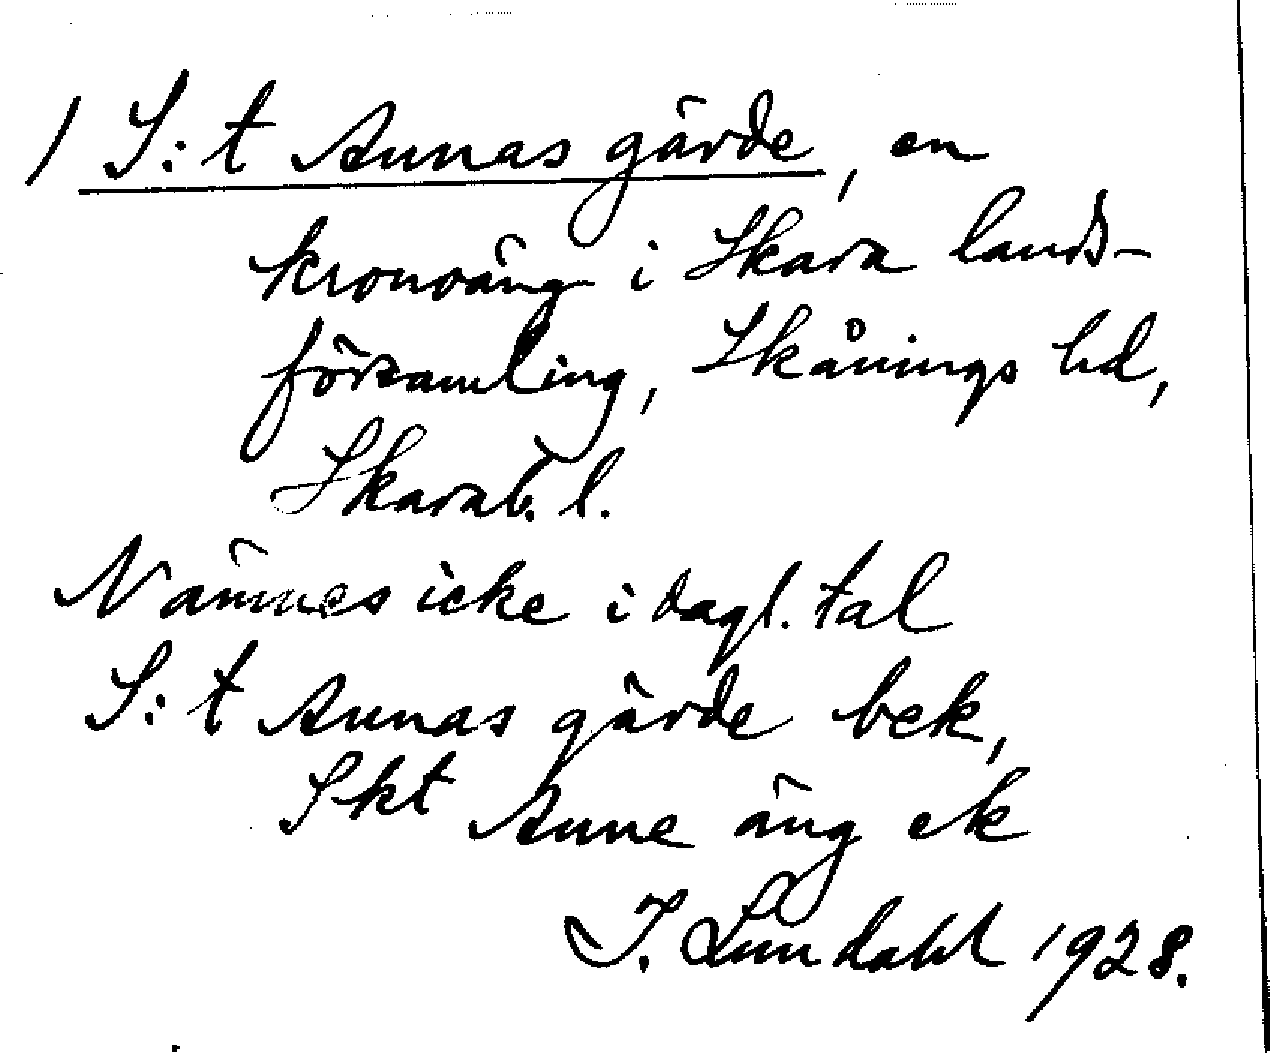 1 S:t Annas gärde, en
kronoäng i Skara lands-
församling, Skånings hd,
Skarab. l.
Nämnes icke i dagl. tal
S:t Annas gärde bek,
Skt Anne äng ek
I. Lundahl 1928.